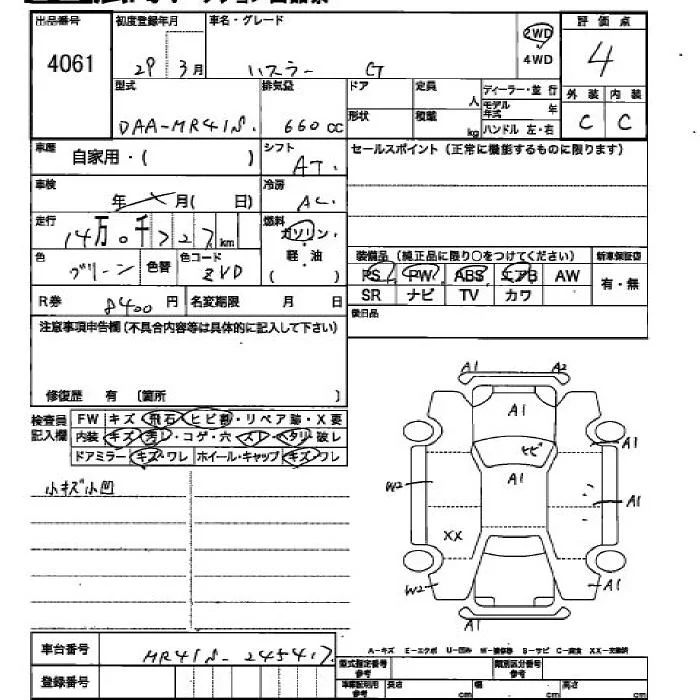 出品番号 初度登録年月 車名・グレード 2WD 4WD 評価点
4061 29 3月 ハスラー G 4
型式 排気量 ドア 定員 人 ディーラー・並行 外装 内装
DAA-MR41S. 660cc 形状 積載 kg モデル年式 年 ハンドル 左・右 C C
車歴 自家用・( ) シフト AT. セールスポイント(正常に機能するものに限ります)
車検 年 月( 日) 冷房 AC.
走行 14万0千727km 燃料 ガソリン・軽・油 ( )
色 グリーン 色替 色コード ZVD
装備品(純正品に限り〇をつけてください) 新車保証書
PS PW ABS エアB AW 有・無
SR ナビ TV カワ
R券 8400円 名変期限 月 日 後日品
注意事項申告欄(不具合内容等は具体的に記入して下さい)
修復歴 有 〔箇所 〕
検査員記入欄 FW キズ・飛石・ヒビ割・リペア跡・X要
内装 キズ・汚レ・コゲ・穴・スレ・ヘタリ・破レ
ドアミラー キズ・ワレ ホイール・キャップ キズ・ワレ
小キズ小凹
A1 A2
A1
ヒビ A1
A1
W2 A1
XX
W2 A1
A1
A-キズ E-エクボ U-凹み W-補修跡 S-サビ C-腐食 XX-交換済
車台番号 MR41S-245417
登録番号
型式指定番号 参考 類別区分番号 参考
長さ cm 幅 cm 高さ cm